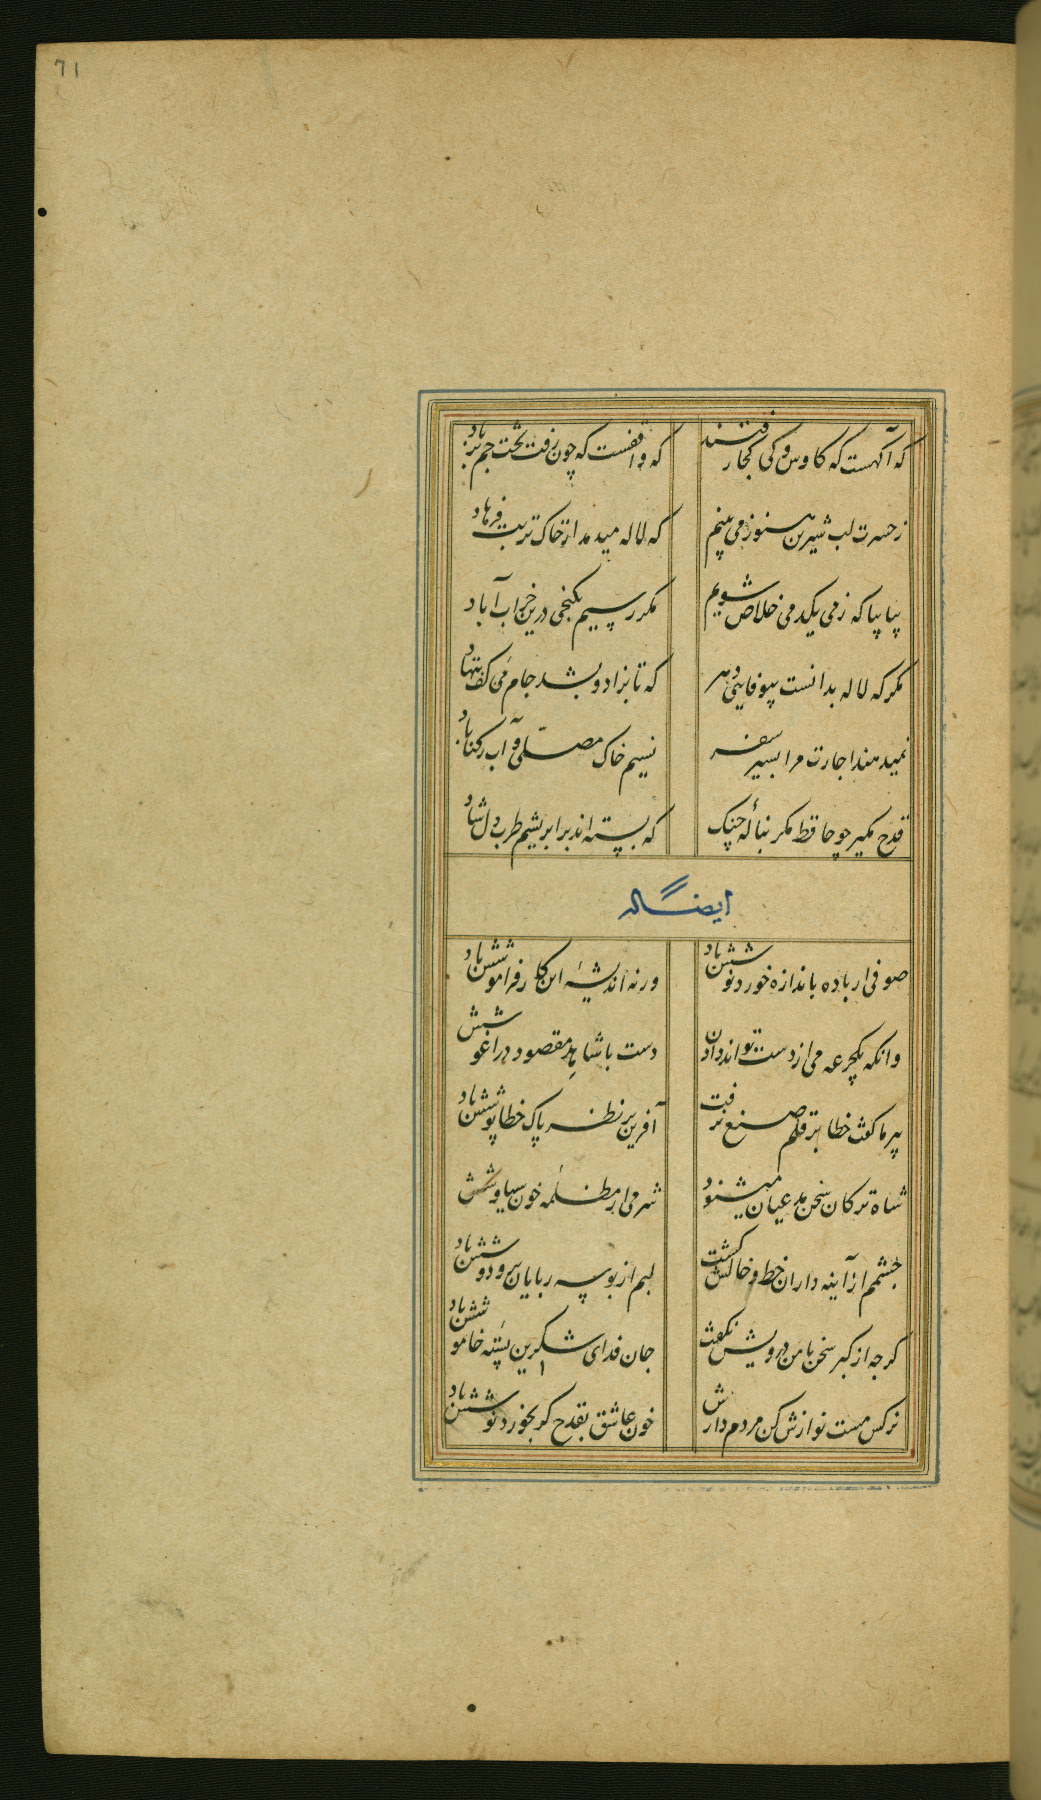 71
که آکهست که کاوس و کی کجا رفتند که واقفست که چون رفت تخت جم بر باد
ز حسرت لب شیرین هنوز می بینم که لاله میدمد از خاک تربت فرهاد
بیا بیا که زمی یکدمی خلاص شویم مکر رسیم بکنجی درین خراب آباد
مکر که لاله بدانست بیوفایی دهر که تا بزاد و بشد جام می ز کف ننهاد
نمیدهند اجازت مرا بسیر سفر نسیم خاک مصلی و آب رکناباد
قدح مکیر چو حافظ مکر بنالهٔ چنک که بسته اند بر ابریشم طرب دل شاد
ایضا له
صوفی ار باده باندازه خورد نوشش باد ورنه اندیشهٔ این کار فراموشش باد
وانکه یکجرعه می از دست تواند دادن دست با شاهد مقصود در اغوشش
پیر ما کفت خطا بر قلم صنع نرفت آفرین بر نظر پاک خطا پوشش باد
شاه ترکان سخن مدعیان میشنود شرمی از مظلمه خون سیاوشش
چشمم از آینه داران خط و خالش کشت لبم از بوسه ربایان بر و دوشش باد
کرچه از کبر سخن با من درویش نکفت جان فدای شکرین پسته خاموشش باد
نرکس مست نوازش کن مردم دارش خون عاشق بقدح کر بخورد نوشش باد